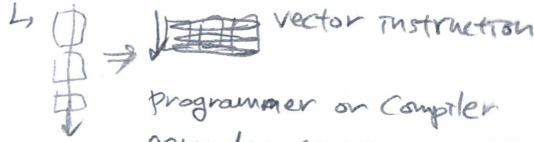 vector instruction
programmer or Compiler